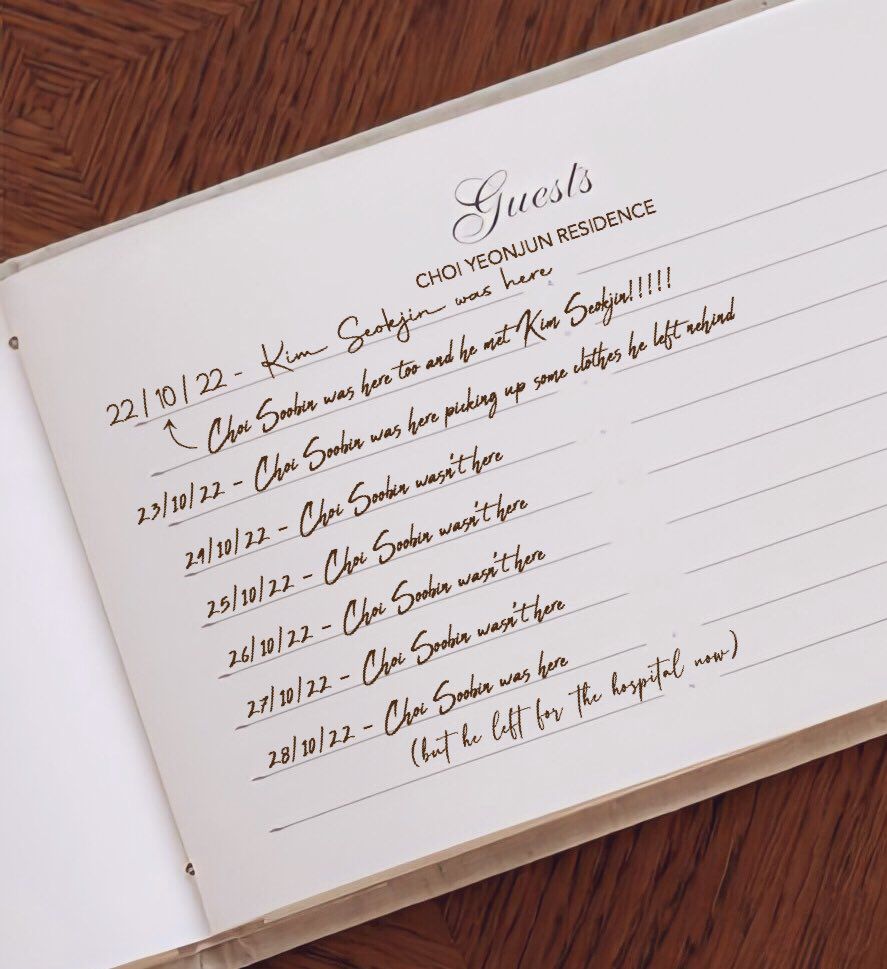 Guests
CHOI YEONJUN RESIDENCE
22/10/22 - Kim Seokjin was here
Choi Soobin was here too and he met Kim Seokjin!!!!!
23/10/22 - Choi Soobin was here picking up some clothes he left nehind
24/10/22 - Choi Soobin wasn't here
25/10/22 - Choi Soobin wasn't here
26/10/22 - Choi Soobin wasn't here
27/10/22 - Choi Soobin wasn't here
28/10/22 - Choi Soobin was here
(but he left for the hospital now)